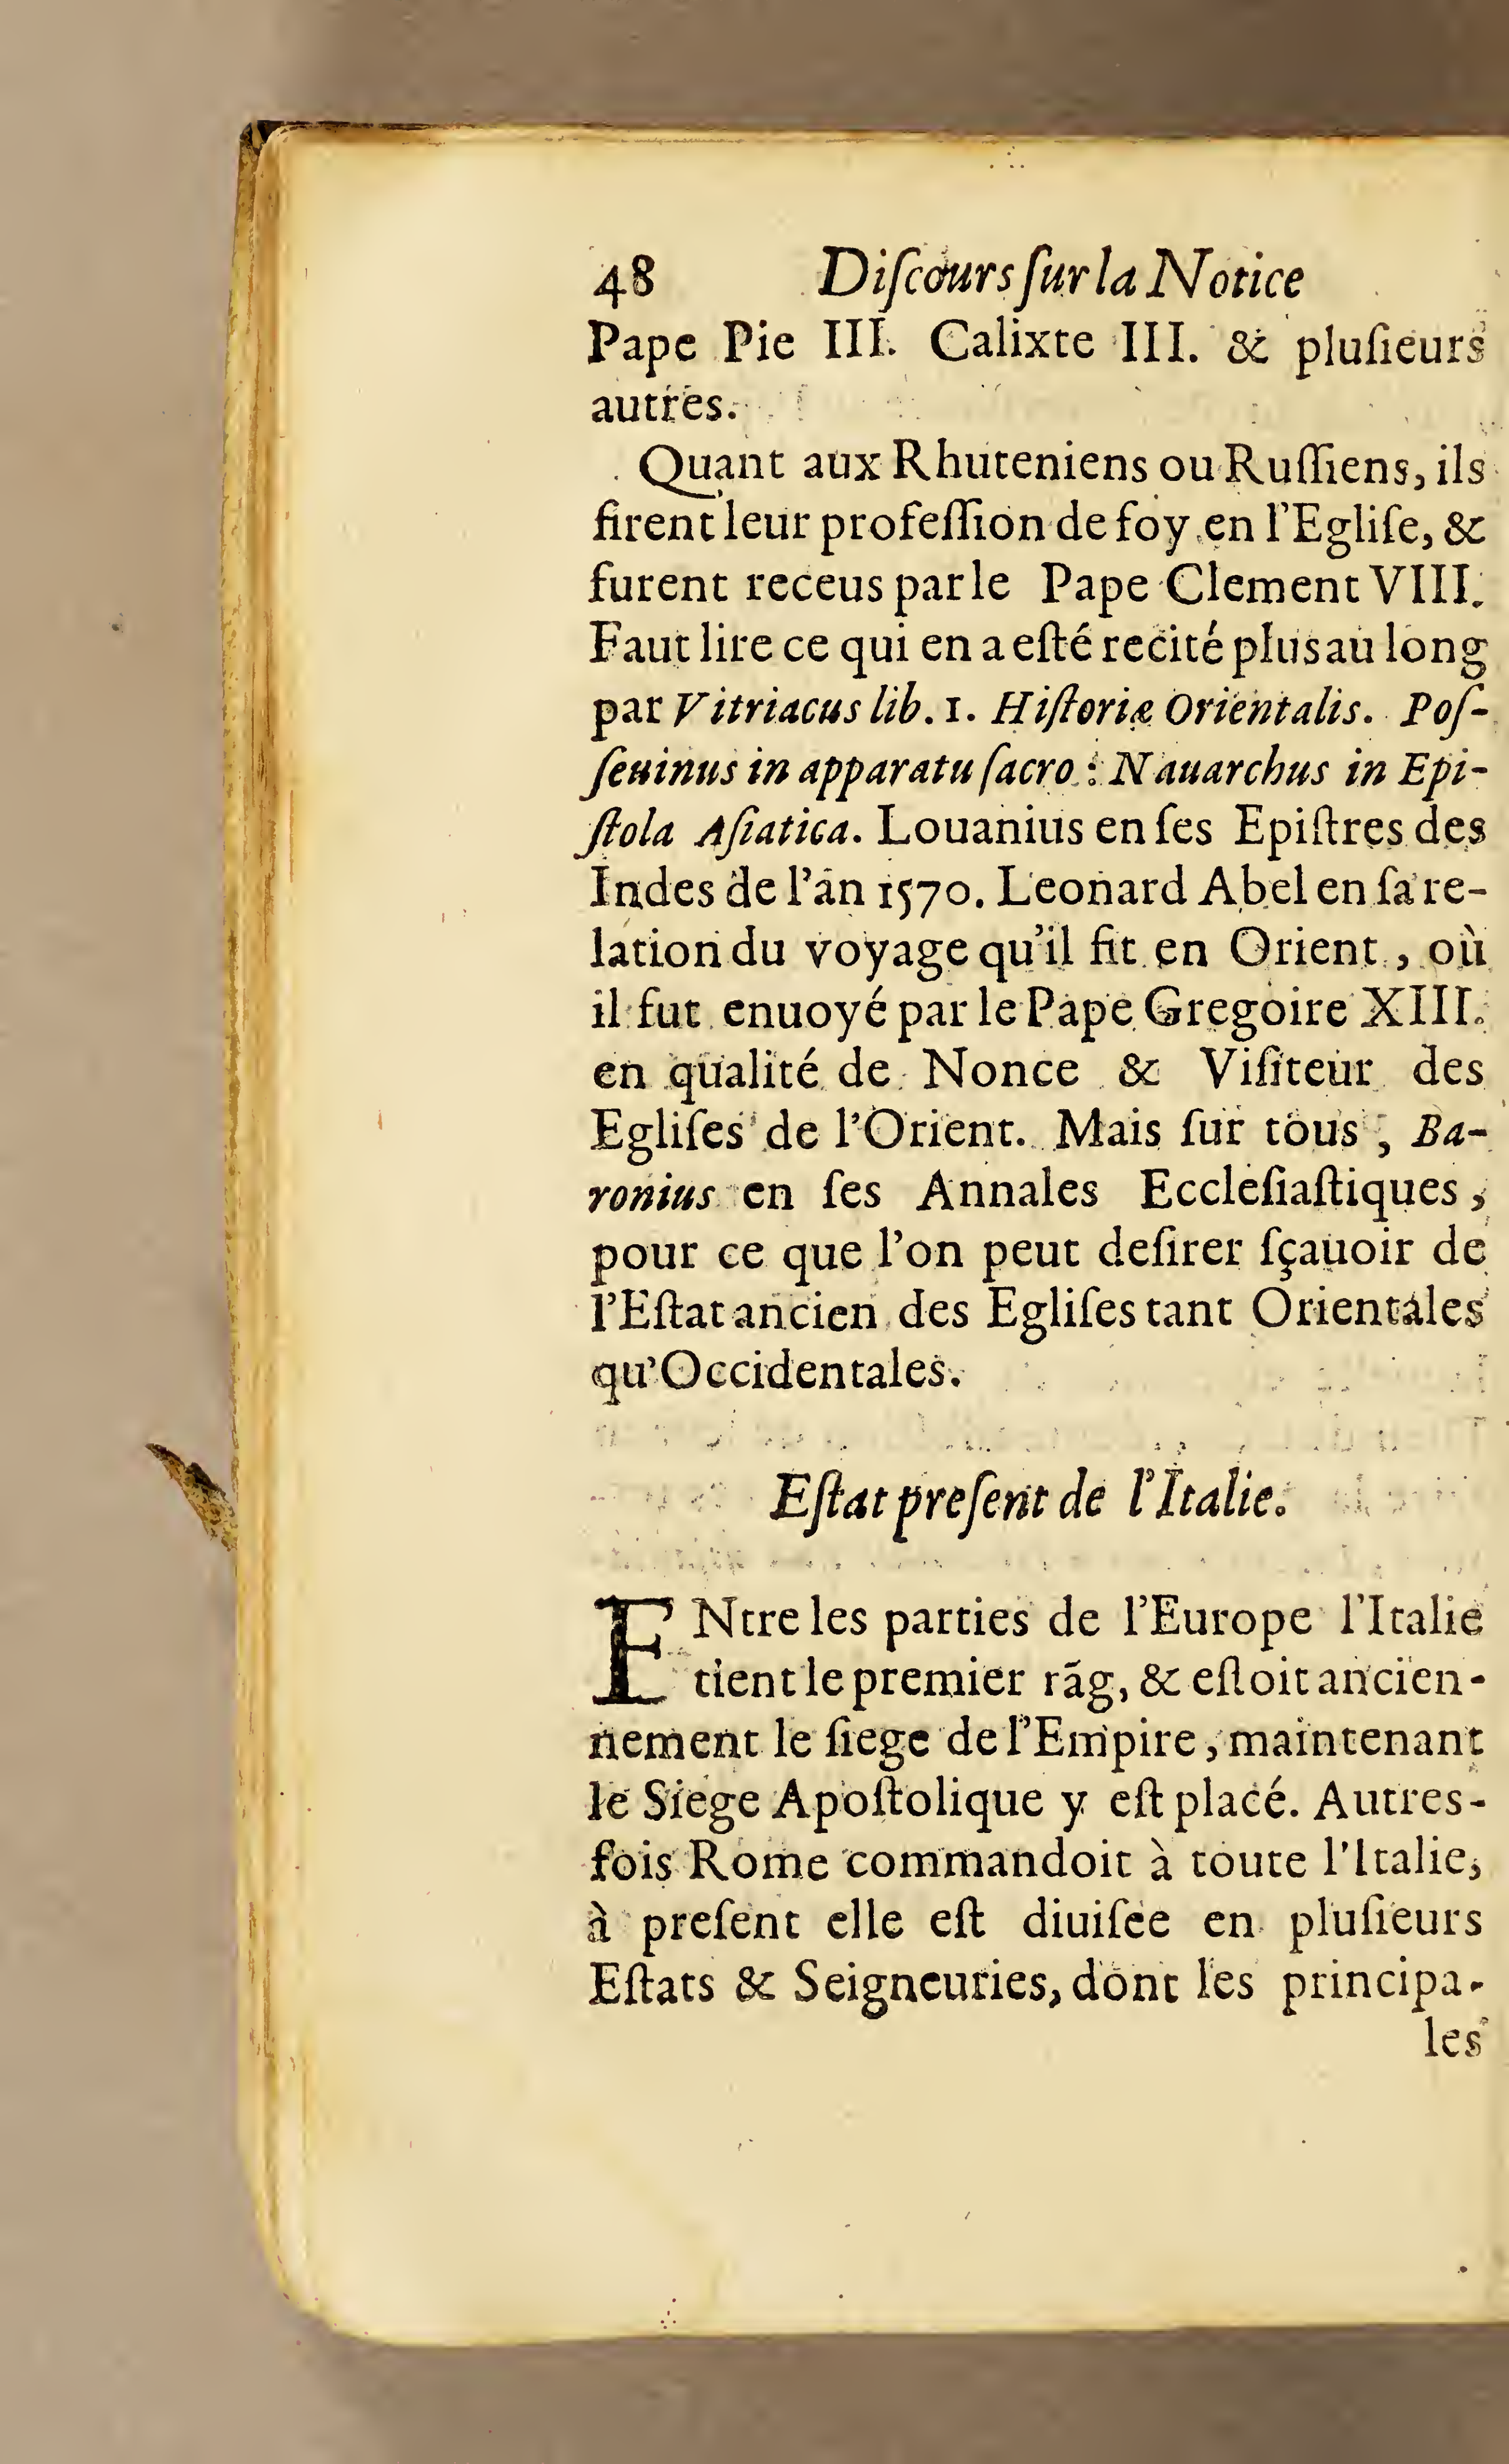 48 Diſcours ſur la Notice
Pape Pie III. Calixte III. & pluſieurs
autres.
Quant aux Rhuteniens ou Ruſſiens, ils
firent leur profeſſion de foy en l'Egliſe, &
furent receus par le Pape Clement VIII.
Faut lire ce qui en a eſté recité plus au long
par Vitriacus lib. 1. Hiſtoriæ Orientalis. Poſ-
ſeuinus in apparatu ſacro : Nauarchus in Epi-
ſtola Aſiatica. Louanius en ſes Epiſtres des
Indes de l'an 1570. Leonard Abel en ſa re-
lation du voyage qu'il fit en Orient, où
il fut enuoyé par le Pape Gregoire XIII.
en qualité de Nonce & Viſiteur des
Egliſes de l'Orient. Mais ſur tous, Ba-
ronius en ſes Annales Eccleſiaſtiques,
pour ce que l'on peut deſirer ſçauoir de
l'Eſtat ancien des Egliſes tant Orientales
qu'Occidentales.
Eſtat preſent de l'Italie.
ENtre les parties de l'Europe l'Italie
tient le premier rãg, & eſtoit ancien-
nement le ſiege de l'Empire, maintenant
le Siege Apoſtolique y eſt placé. Autres-
fois Rome commandoit à toute l'Italie,
à preſent elle eſt diuiſée en pluſieurs
Eſtats & Seigneuries, dont les principa-
les